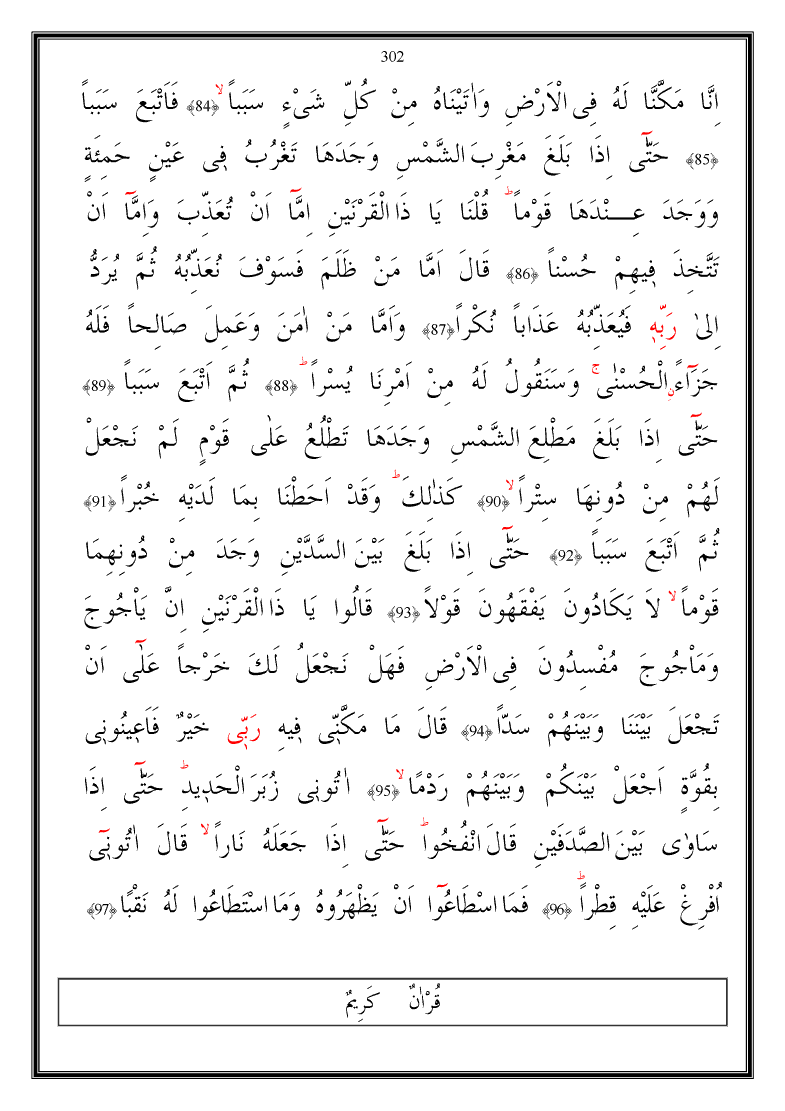 302
اِنَّا مَكَّنَّا لَهُ فِى الْاَرْضِ وَاٰتَيْنَاهُ مِنْ كُلِّ شَىْءٍ سَبَباًۙ ﴿84﴾ فَاَتْبَعَ سَبَباً
﴿85﴾ حَتّٰٓى اِذَا بَلَغَ مَغْرِبَ الشَّمْسِ وَجَدَهَا تَغْرُبُ فٖى عَيْنٍ حَمِئَةٍ
وَوَجَدَ عِـــنْدَهَا قَوْماًؕ قُلْنَا يَا ذَا الْقَرْنَيْنِ اِمَّٓا اَنْ تُعَذِّبَ وَاِمَّٓا اَنْ
تَتَّخِذَ فٖيهِمْ حُسْناً ﴿86﴾ قَالَ اَمَّا مَنْ ظَلَمَ فَسَوْفَ نُعَذِّبُهُ ثُمَّ يُرَدُّ
اِلٰى رَبِّهٖ فَيُعَذِّبُهُ عَذَاباً نُكْراً ﴿87﴾ وَاَمَّا مَنْ اٰمَنَ وَعَمِلَ صَالِحاً فَلَهُ
جَزَٓاءًۨ الْحُسْنٰىۚ وَسَنَقُولُ لَهُ مِنْ اَمْرِنَا يُسْراًؕ ﴿88﴾ ثُمَّ اَتْبَعَ سَبَباً ﴿89﴾
حَتّٰٓى اِذَا بَلَغَ مَطْلِعَ الشَّمْسِ وَجَدَهَا تَطْلُعُ عَلٰى قَوْمٍ لَمْ نَجْعَلْ
لَهُمْ مِنْ دُونِهَا سِتْراًۙ ﴿90﴾ كَذٰلِكَؕ وَقَدْ اَحَطْنَا بِمَا لَدَيْهِ خُبْراً ﴿91﴾
ثُمَّ اَتْبَعَ سَبَباً ﴿92﴾ حَتّٰٓى اِذَا بَلَغَ بَيْنَ السَّدَّيْنِ وَجَدَ مِنْ دُونِهِمَا
قَوْماًۙ لَا يَكَادُونَ يَفْقَهُونَ قَوْلاً ﴿93﴾ قَالُوا يَا ذَا الْقَرْنَيْنِ اِنَّ يَاْجُوجَ
وَمَاْجُوجَ مُفْسِدُونَ فِى الْاَرْضِ فَهَلْ نَجْعَلُ لَكَ خَرْجاً عَلٰٓى اَنْ
تَجْعَلَ بَيْنَنَا وَبَيْنَهُمْ سَدّاً ﴿94﴾ قَالَ مَا مَكَّنّٖى فٖيهِ رَبّٖى خَيْرٌ فَاَعٖينُونٖى
بِقُوَّةٍ اَجْعَلْ بَيْنَكُمْ وَبَيْنَهُمْ رَدْمًاۙ ﴿95﴾ اٰتُونٖى زُبَرَ الْحَدٖيدِؕ حَتّٰٓى اِذَا
سَاوٰى بَيْنَ الصَّدَفَيْنِ قَالَ انْفُخُواؕ حَتّٰٓى اِذَا جَعَلَهُ نَاراًۙ قَالَ اٰتُونٖٓى
اُفْرِغْ عَلَيْهِ قِطْراًؕ ﴿96﴾ فَمَا اسْطَاعُٓوا اَنْ يَظْهَرُوهُ وَمَا اسْتَطَاعُوا لَهُ نَقْبًا ﴿97﴾
قُرْاٰنٌ كَرِيمٌ